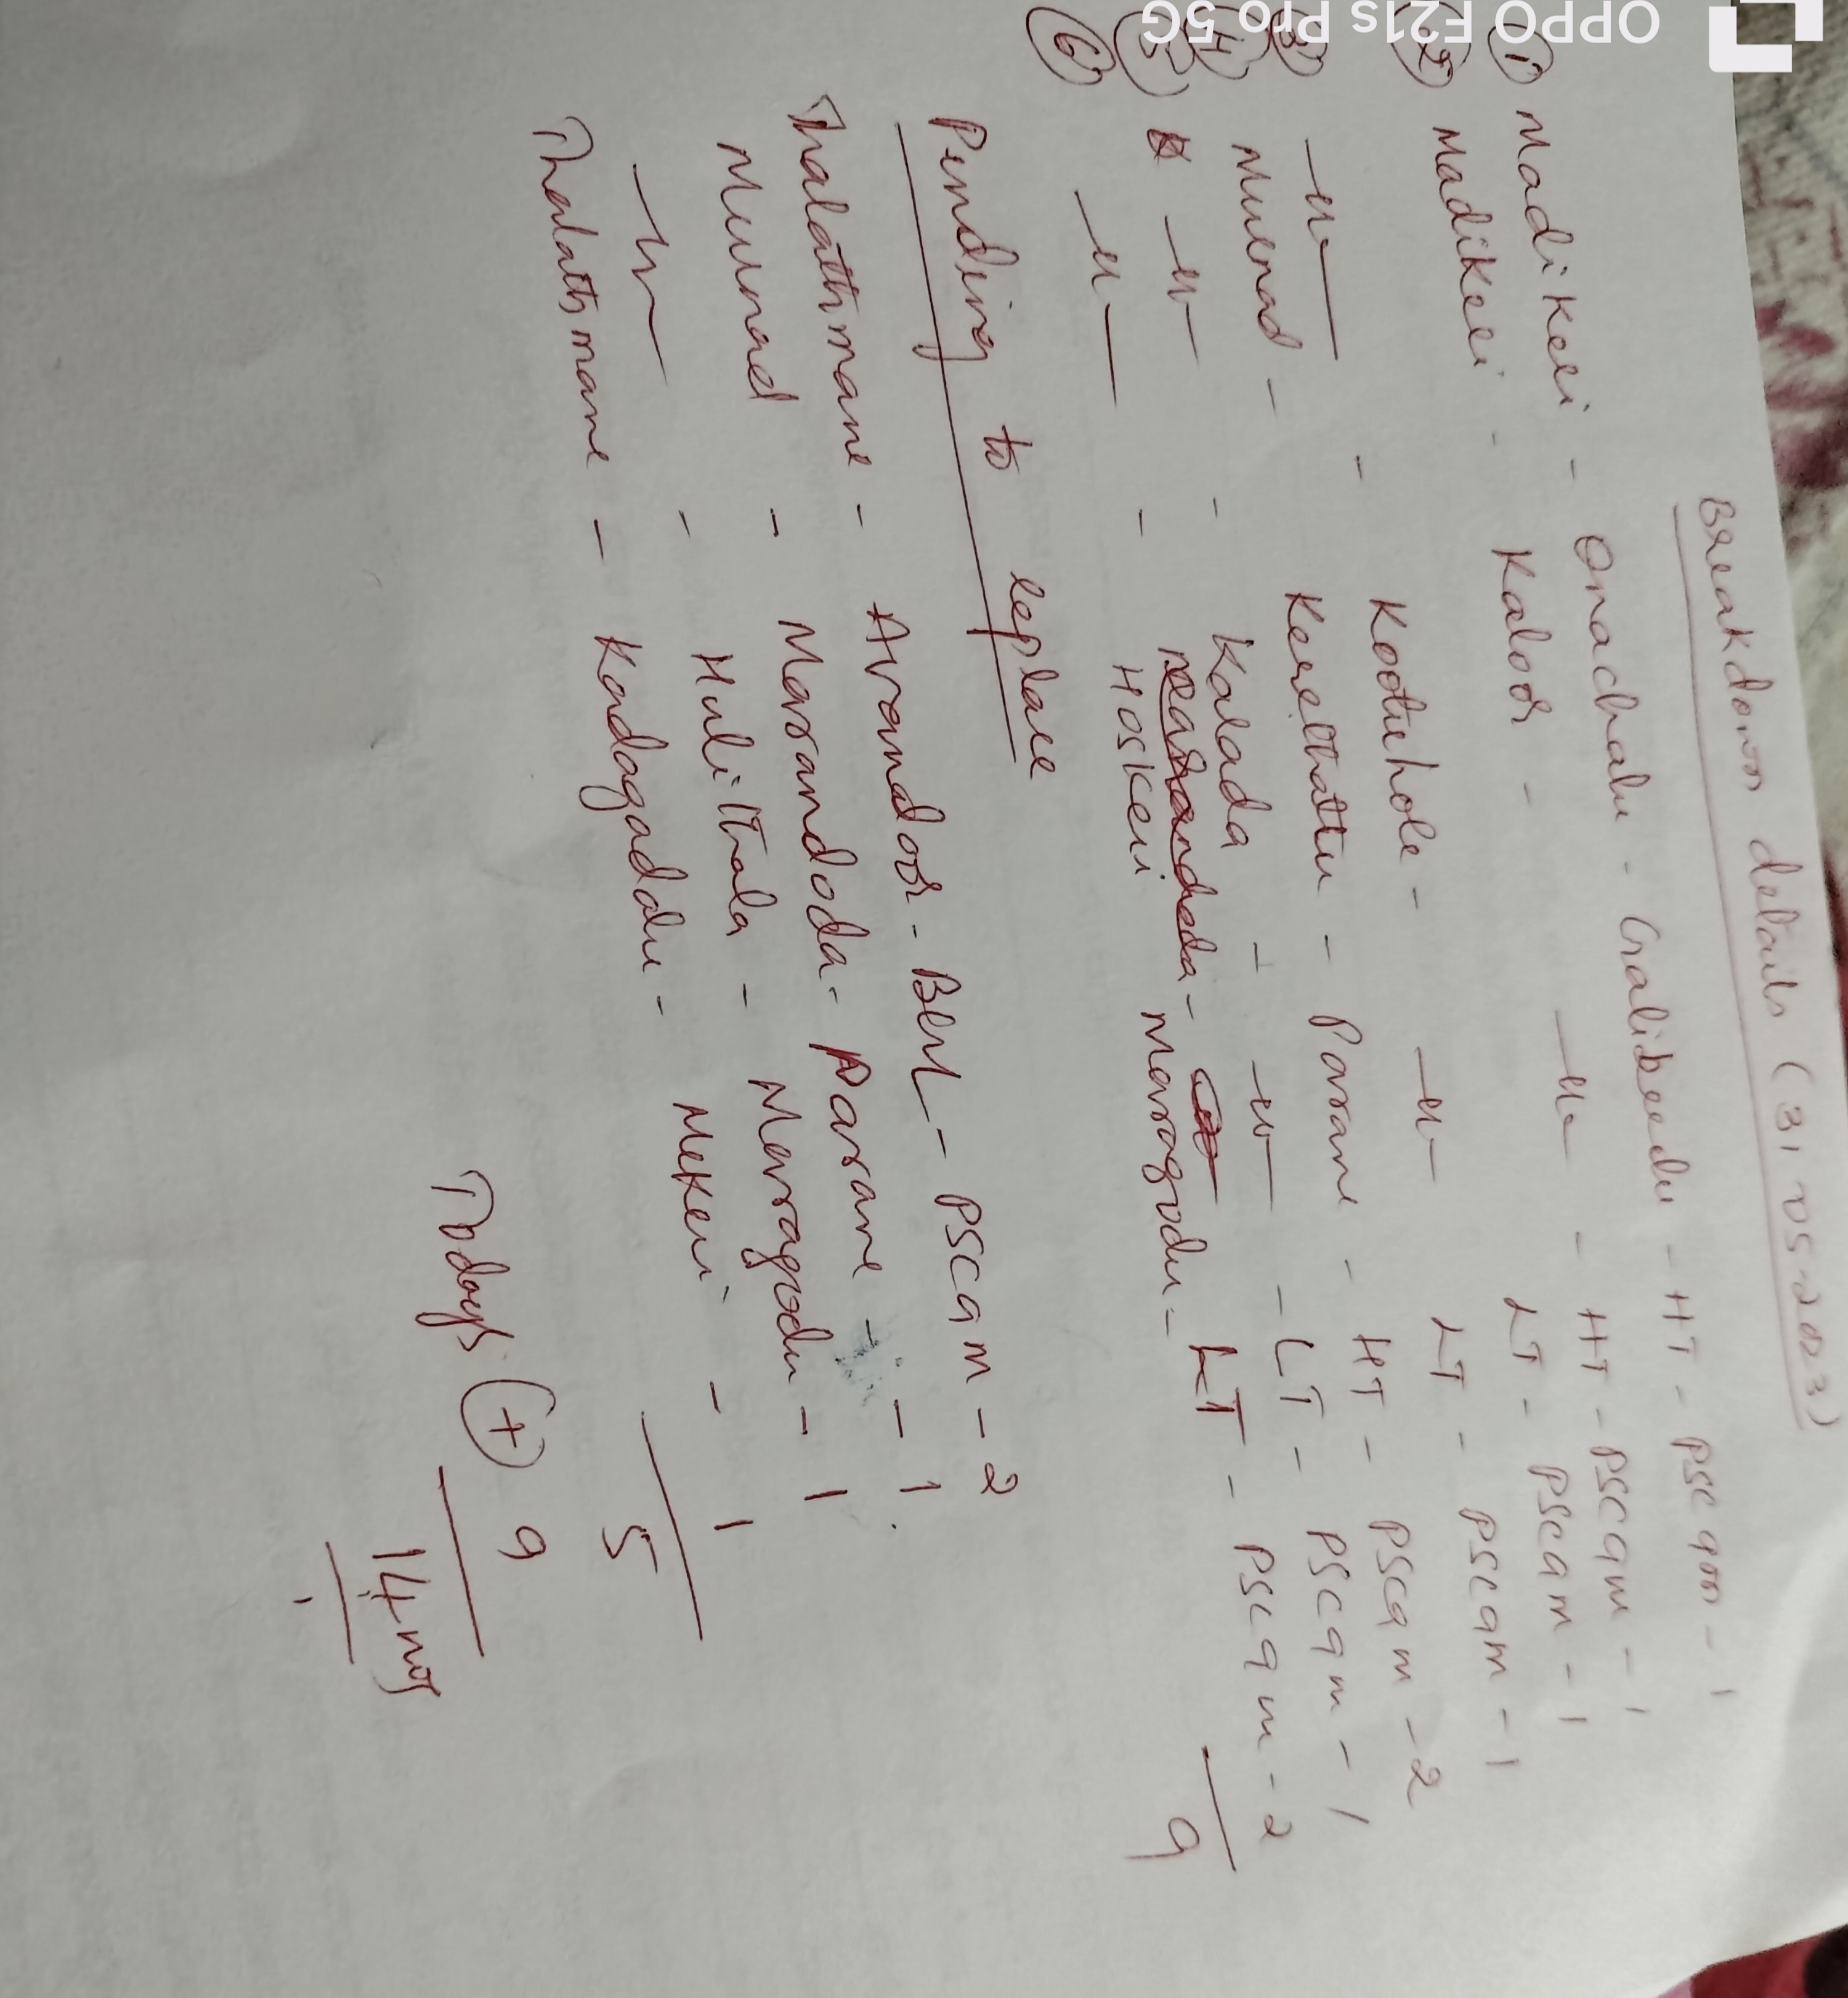 Breakdown details (31.05.2023)
① Madikeri - Onachalu - Galibeedu - HT - PSCqm - 1
② Madikeri - Kaloor - —〃— - HT - PSCqm - 1
LT - PSCqm - 1
③ —〃— - Kootuhole - —〃— LT - PSCqm - 1
④ Murnad - Kerethattu - Parane - HT - PSCqm - 2
⑤ —〃— - Kalada - —〃— - LT - PSCqm - 1
⑥ —〃— - Hoskeri - Maragodu - LT - PSCqm - 2
9
Pending to replace
Thalathmane - Avandoor - Betl - PSCqm - 2
Murnad - Marandoda - Parane - - 1
—〃— - Hulithala - Maragodu - 1
Thalathmane - Kadagadalu - Mekeri - - 1
5
Todays (+) 9
14 nos
OPPO F21s Pro 5G